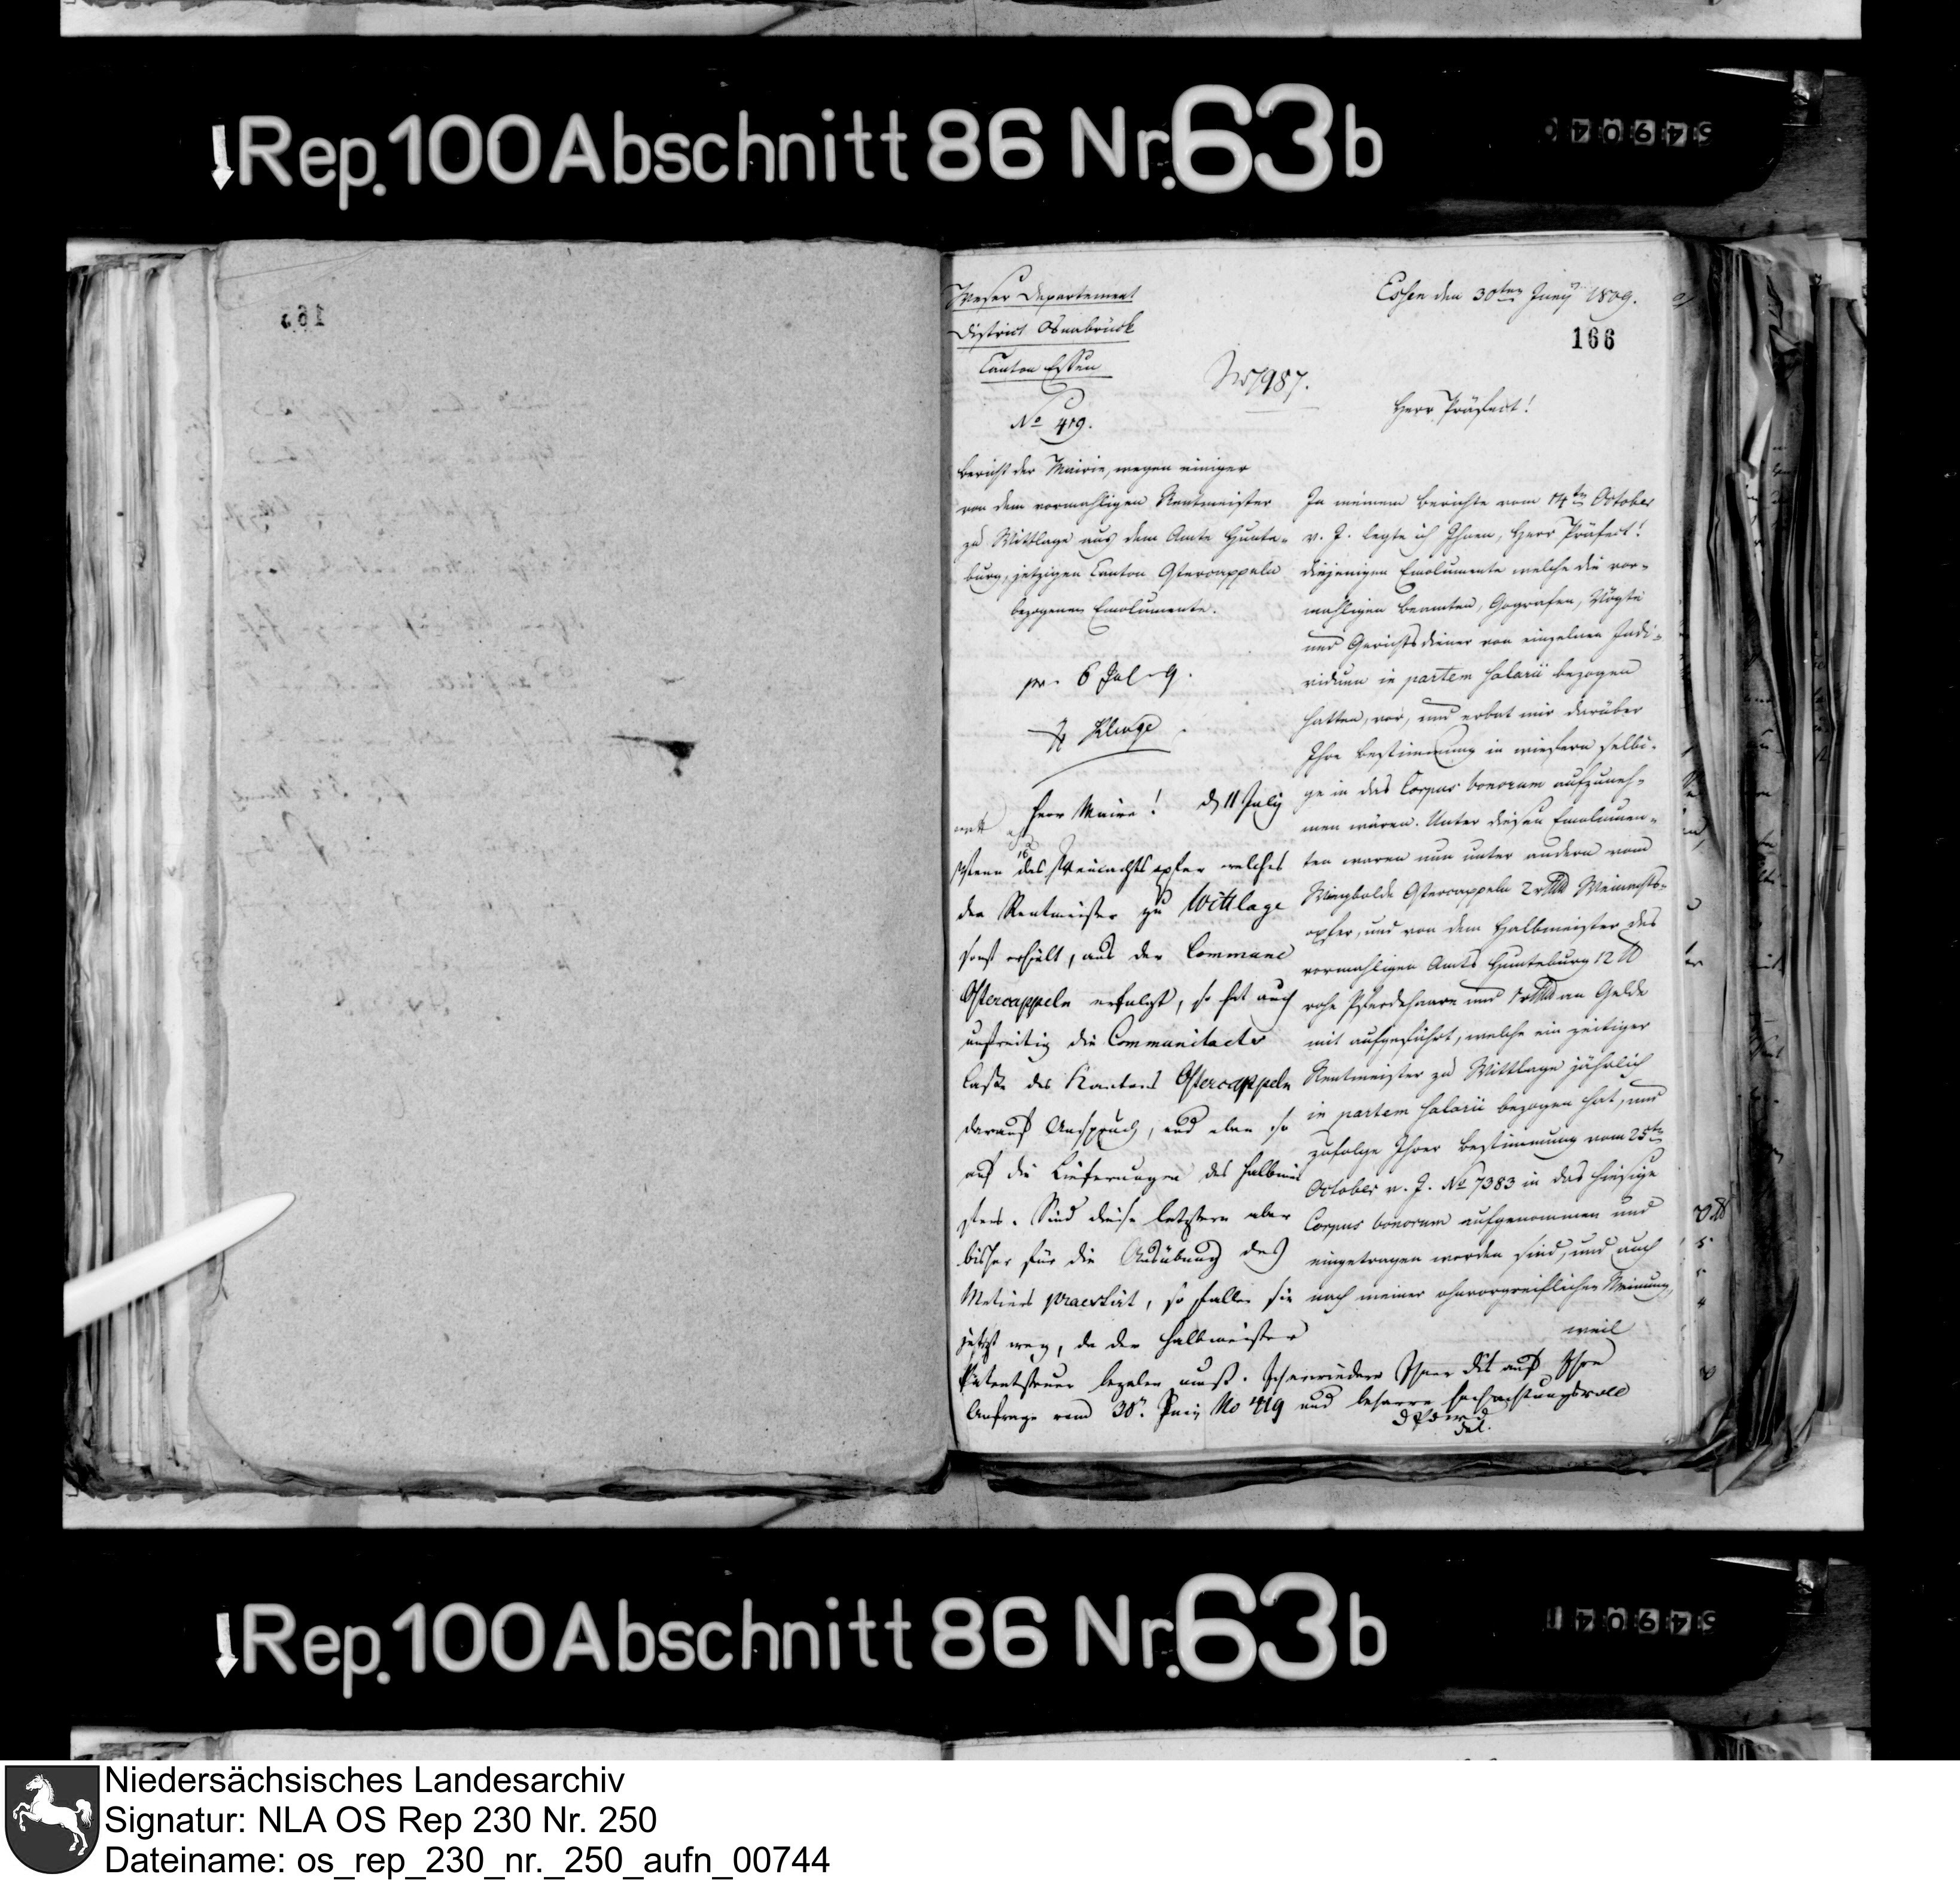 Rep. 100 Abschnitt 86 Nr. 63b
Weser Departement
District Osnabrück
Canton Essen
No 419.
Essen den 30ten Juny 1809.
166
No 7987.
Herr Präfect!
Bericht der Mairie, wegen einiger
von dem vormahligen Rentmeister
zu Wittlage aus dem Amte Hunte-
burg, jetzigen Canton Ostercappeln
bezogenen Emolumente.
pr. 6 Jul. 9.
In meinem Berichte vom 14ten October
v. J. legte ich Ihnen, Herr Präfect!
diejenigen Emolumente welche die vor-
mahligen Beamten, Gografen, Vögte
und Gerichtsdiener von einzelnen Indi-
viduen in partem Salarii bezogen
hatten, vor, und erbat mir darüber
Ihre Bestimmung in wiefern selbi-
ge in das Corpus bonorum aufzuneh-
men wären. Unter diesen Emolumen-
ten waren nun unter andern vom
Wiegbolde Ostercappeln 2 rthlr Weinachts-
opfer, und von dem Halbmeister des
vormahligen Amts Hunteburg 12 ℔
rohe Pferdehaare und 1 rthlr an Gelde
mit aufgeführt, welche ein zeitiger
Rentmeister zu Wittlage jährlich
in partem Salarii bezogen hat, und
zufolge Ihrer Bestimmung vom 25ten
October v. J. No 7383 in das hiesige
Corpus bonorum aufgenommen und
eingetragen worden sind, und auch
nach meiner ohnvorgreiflichen Meinung,
weil
Herr Maire! d 11 July
Wenn das Weinachtsopfer welches
der Rentmeister zu Wittlage
sonst erhielt, aus der Commune
Ostercappeln erfolgt, so hat auch
unstreitig die Communitacts
Casse des Kantons Ostercappeln
darauf Anspruch, und eben so
auf die Lieferungen des Halbmei
sters. Sind diese letztern aber
bisher für die Ausübung des
Metiers praestirt, so fallen sie
jetzt weg, da der Halbmeister
Patentsteuer bezalen muß. Ich erwiedere Ihnen dis auf Ihre
Anfrage vom 30n. Juny No 419 und beharre hochachtungsvoll
Rep. 100 Abschnitt 86 Nr. 63b
Niedersächsisches Landesarchiv
Signatur: NLA OS Rep 230 Nr. 250
Dateiname: os_rep_230_nr._250_aufn_00744